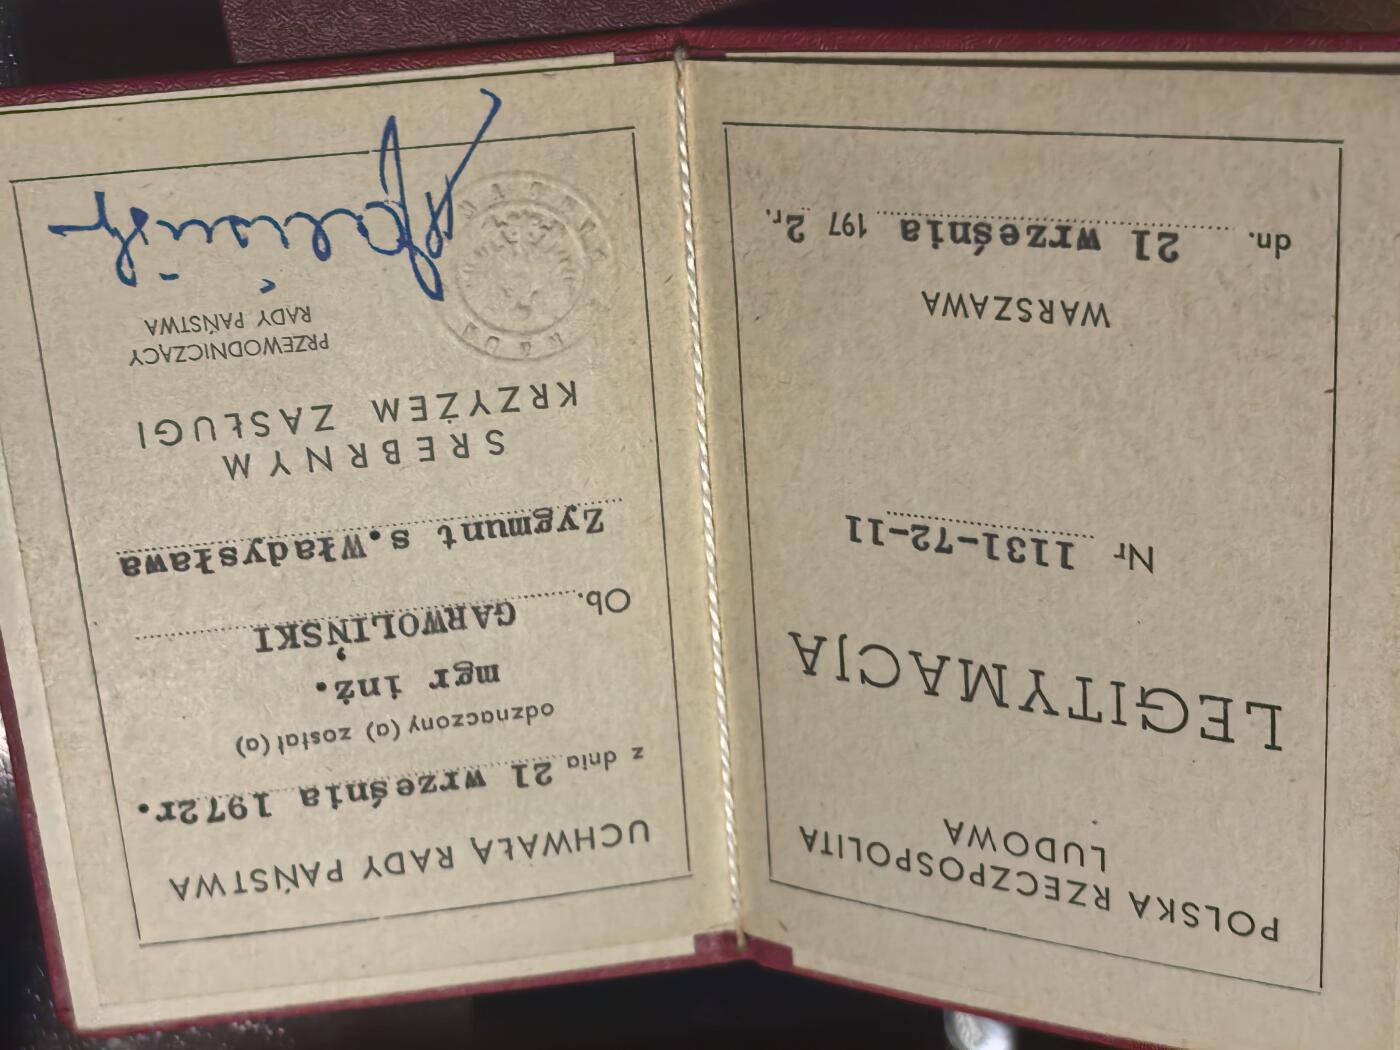 POLSKA RZECZPOSPOLITA
LUDOWA
LEGITYMACJA
Nr 1131-72-11
WARSZAWA
dn. 21 września 197 2r.
UCHWAŁĄ RADY PAŃSTWA
z dnia 21 września 1972r.
odznaczony (a) został (a)
mgr inż.
Ob. GARWOLIŃSKI
Zygmunt s.Władysława
SREBRNYM
KRZYŻEM ZASŁUGI
PRZEWODNICZĄCY
RADY PAŃSTWA